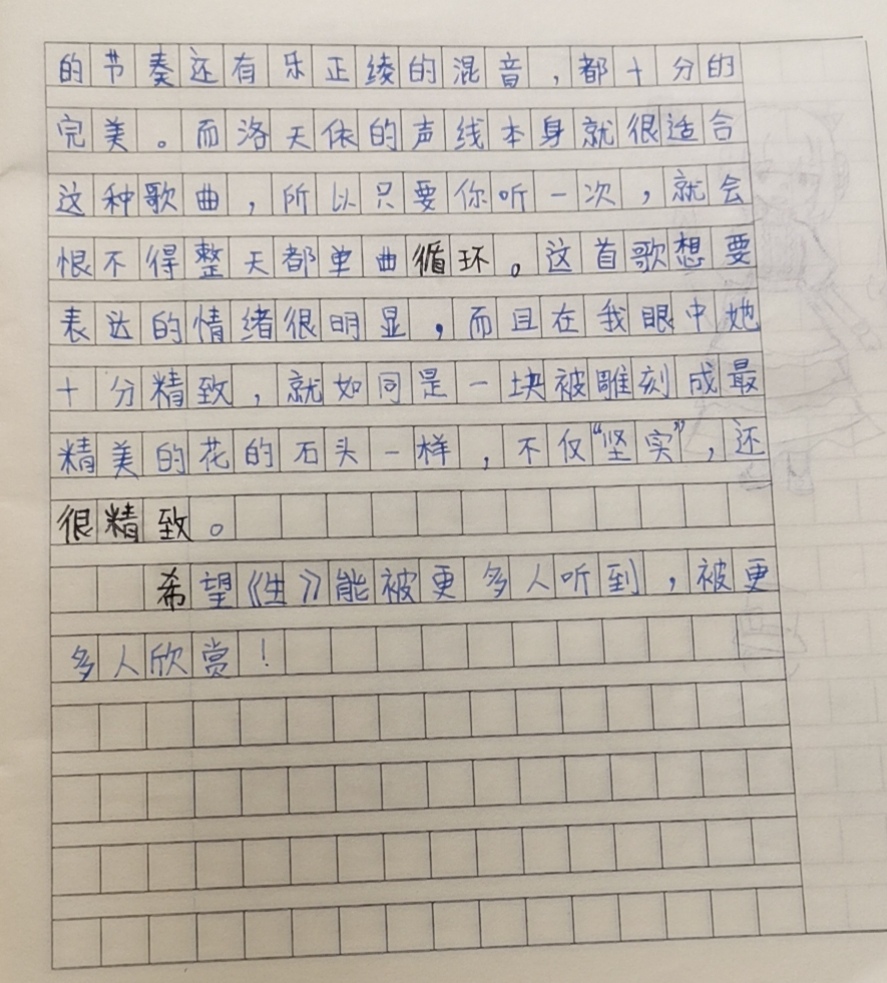 的节奏还有乐正绫的混音，都十分的
完美。而洛天依的声线本身就很适合
这种歌曲，所以只要你听一次，就会
恨不得整天都单曲循环。这首歌想要
表达的情绪很明显，而且在我眼中她
十分精致，就如同是一块被雕刻成最
精美的花的石头一样，不仅“坚实”，还
很精致。
希望《生》能被更多人听到，被更
多人欣赏！